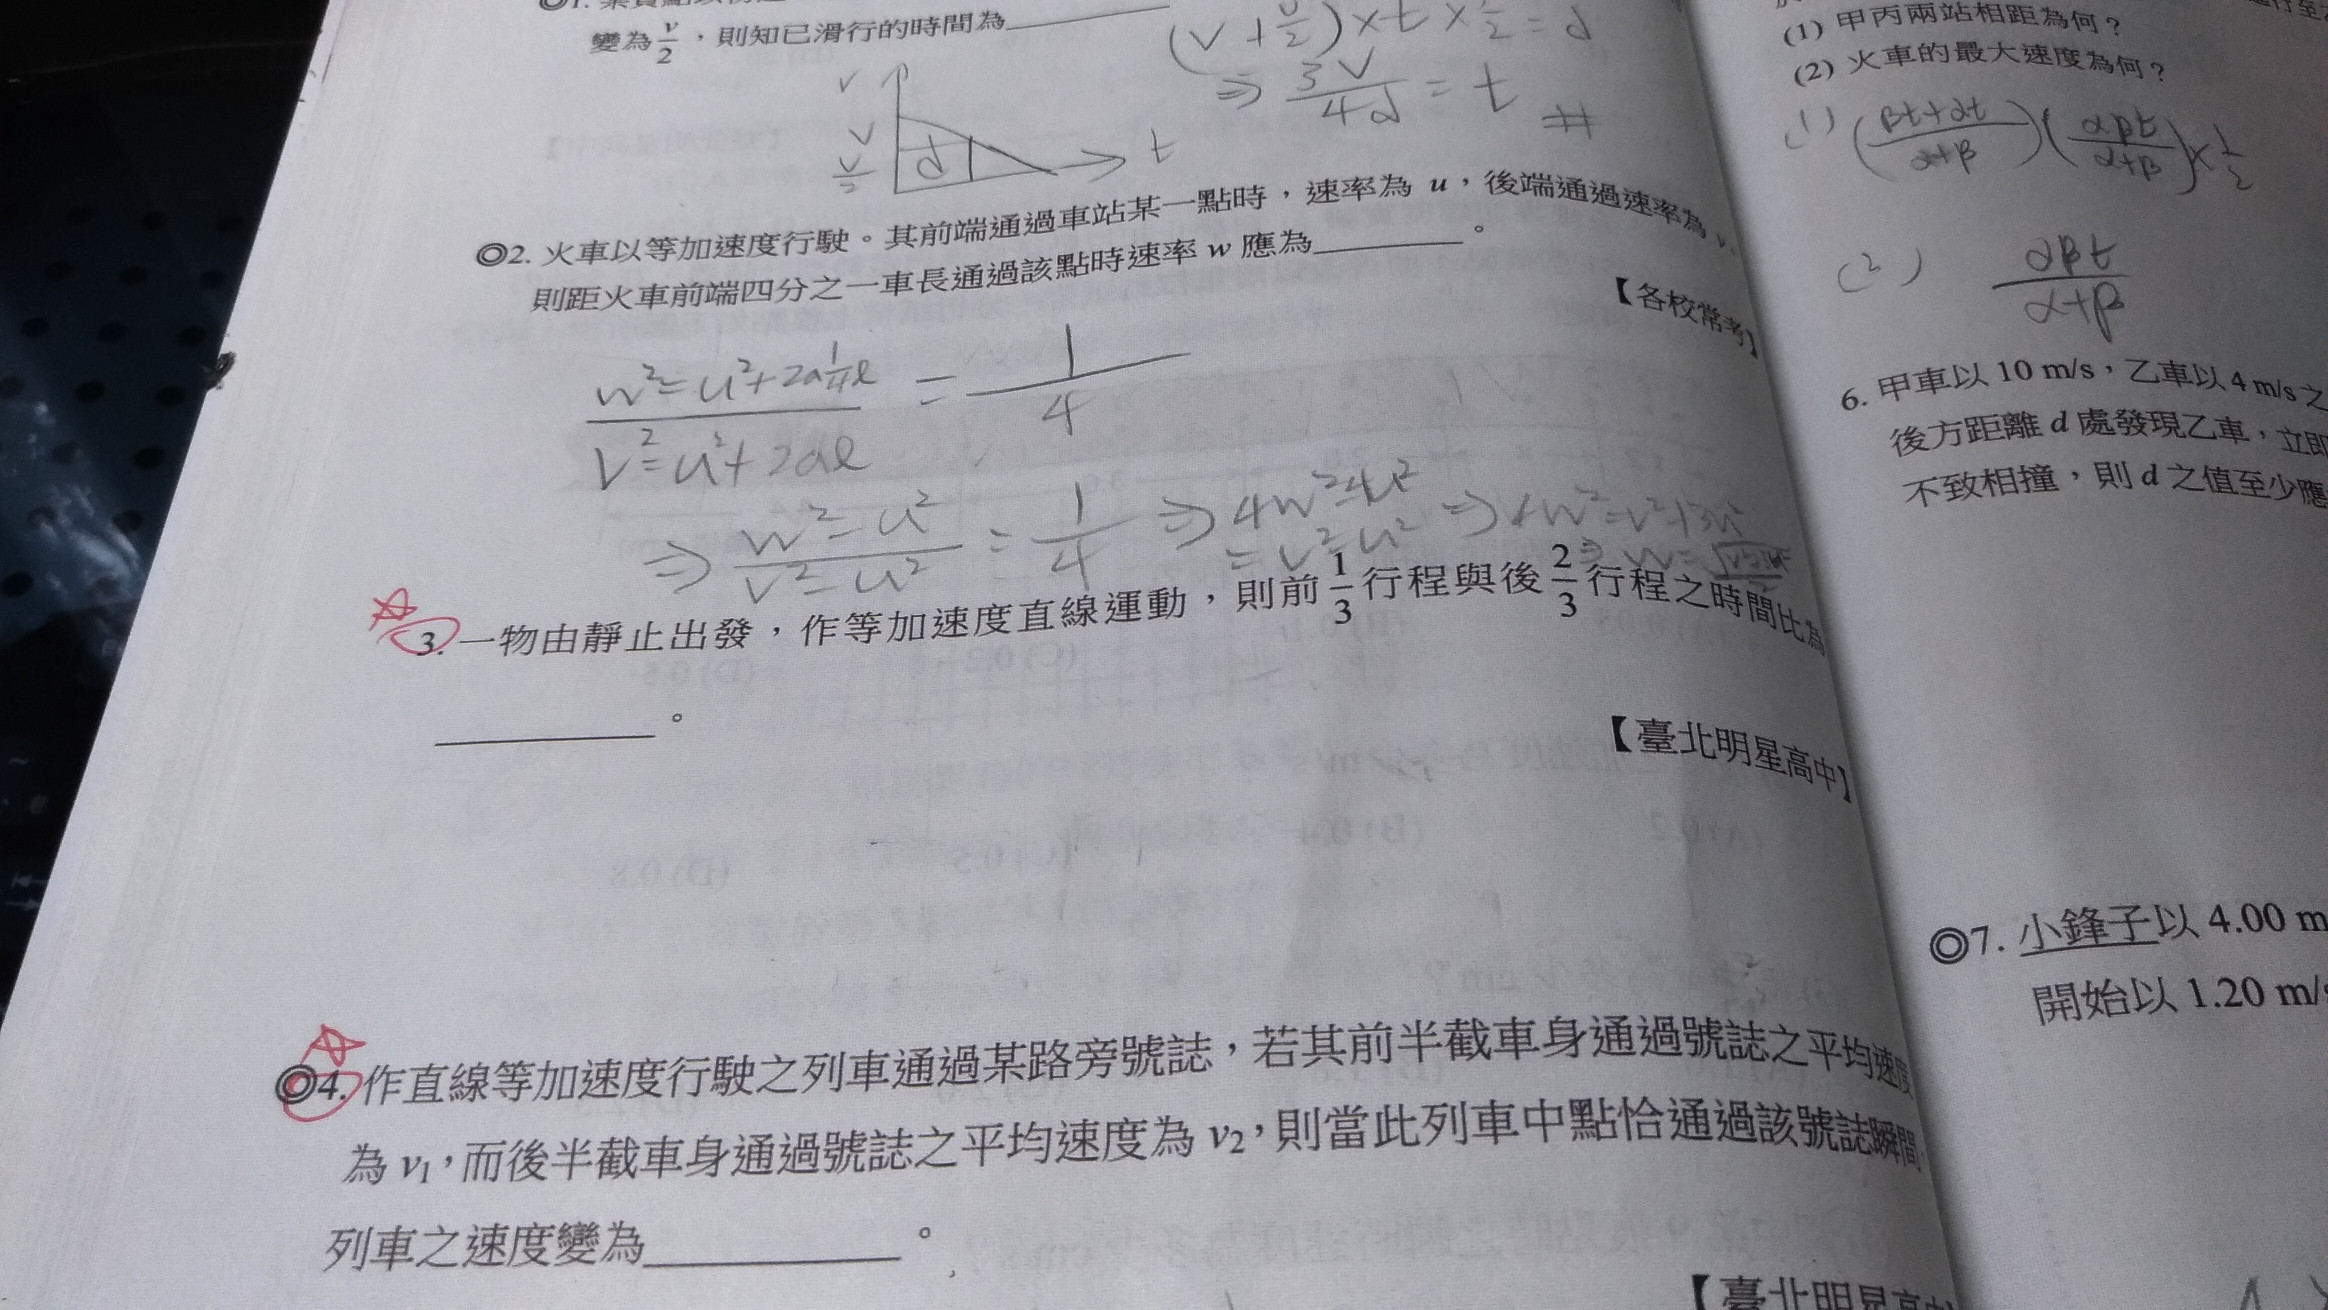 變為 v/2，則知已滑行的時間為
(v + v/2) × t × 1/2 = d
⇒ 3v/4d = t #
v
v
v/2
d
t
◎2. 火車以等加速度行駛。其前端通過車站某一點時，速率為 u，後端通過速率為 v，
則距火車前端四分之一車長通過該點時速率 w 應為＿＿＿＿。
【各校常考】
w²=u²+2a¼l / v²=u²+2al = 1/4
⇒ w²-u² / v²-u² = 1/4 ⇒ 4w²-4u² = v²-u² ⇒ 4w²=v²+3u²
3. 一物由靜止出發，作等加速度直線運動，則前 1/3 行程與後 2/3 行程之時間比為
＿＿＿＿。
【臺北明星高中】
◎4. 作直線等加速度行駛之列車通過某路旁號誌，若其前半截車身通過號誌之平均速度
為 v₁，而後半截車身通過號誌之平均速度為 v₂，則當此列車中點恰通過該號誌瞬間
列車之速度變為＿＿＿＿。
【臺北明星高中
(1) 甲丙兩站相距為何？
(2) 火車的最大速度為何？
(1) (βt+αt / α+β)(αβt / α+β) × 1/2
(2) αβt / α+β
6. 甲車以 10 m/s，乙車以 4 m/s 之
後方距離 d 處發現乙車，立即
不致相撞，則 d 之值至少應
◎7. 小鋒子以 4.00 m
開始以 1.20 m/